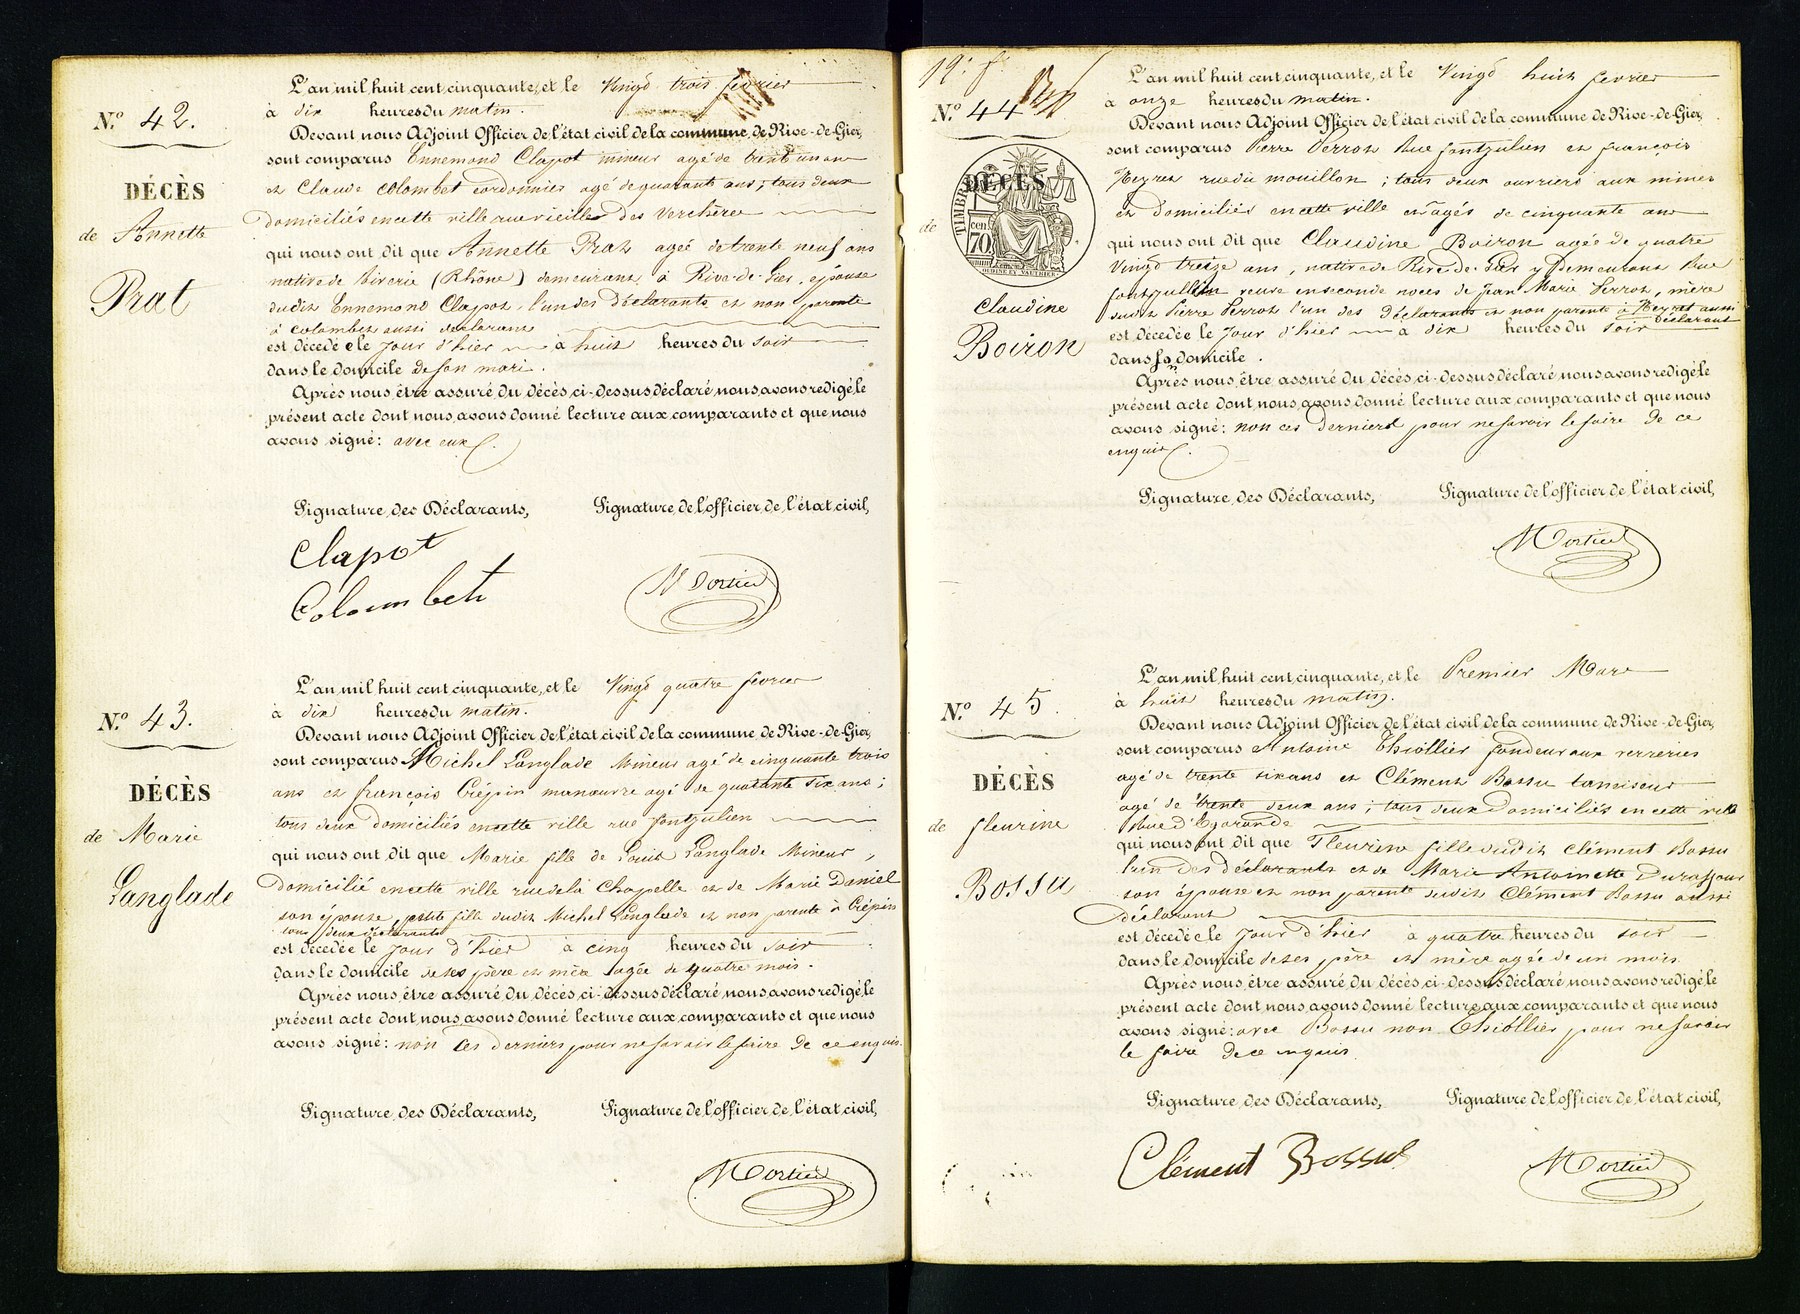 L'an mil huit cent cinquante, et le Vingt trois fevrier
à dix heures du matin.
N.° 42.
Devant nous Adjoint Officier de l'état civil de la commune de Rive-de-Gier,
sont comparus Ennemond Clapot mineur agé de trente un ans
DÉCÈS
et Claude Colombet cordonnier agé de quarante ans ; tous deux
domiciliés en cette ville rue vieille des Verchères
de Annette
Prat
qui nous ont dit que Annette Prat agée de trente neuf ans
native de Riverie (Rhône) demeurant à Rive-de-Gier, épouse
dudit Ennemond Clapot, l'un des déclarants et non parente
à Colombet aussi déclarant
est décédée le jour d'hier à huit heures du soir
dans le domicile de son mari.
Après nous être assuré du décès ci-dessus déclaré, nous avons redigé le
présent acte dont nous avons donné lecture aux comparants et que nous
avons signé : avec eux.
Signature des Déclarants, Signature de l'officier de l'état civil,
Clapot
Coloumbet
Mortier
L'an mil huit cent cinquante, et le Vingt quatre fevrier
à dix heures du matin.
N.° 43.
Devant nous Adjoint Officier de l'état civil de la commune de Rive-de-Gier,
sont comparus Michel Langlade mineur agé de cinquante trois
DÉCÈS
ans et françois Crépin manœuvre agé de quarante six ans ;
de Marie
Langlade
tous deux domiciliés en cette ville rue fontjulien
qui nous ont dit que Marie fille de Louis Langlade Mineur,
domicilié en cette ville rue de la Chapelle et de Marie Daniel
son épouse, petite fille dudit Michel Langlade et non parente à Crépin
tous deux déclarants
est décédée le jour d'hier à cinq heures du soir
dans le domicile de ses père et mère agée de quatre mois.
Après nous être assuré du décès ci-dessus déclaré, nous avons redigé le
présent acte dont nous avons donné lecture aux comparants et que nous
avons signé : non ces derniers pour ne savoir le faire de ce enquis.
Signature des Déclarants, Signature de l'officier de l'état civil,
Mortier
19.e f.
L'an mil huit cent cinquante, et le Vingt huit fevrier
à onze heures du matin.
N.° 44
Devant nous Adjoint Officier de l'état civil de la commune de Rive-de-Gier,
sont comparus Pierre Verrot Rue fontjulien et françois
DÉCÈS
TIMBRE
70 cen.
OUDINÉ ET VAUTHIER
Neyret rue du mouillon ; tous deux ouvriers aux mines
et domiciliés en cette ville et agés de cinquante ans
de
Claudine
Boiron
qui nous ont dit que Claudine Boiron agée de quatre
Vingt treize ans, native de Rive-de-Gier y demeurant Rue
fontjullin veuve en seconde noces de Jean Marie Verrot, mère
dudit Pierre Verrot l'un des déclarants et non parente à Neyret aussi
déclarant
est décédée le jour d'hier à dix heures du soir
dans son domicile.
Après nous être assuré du décès ci-dessus déclaré, nous avons redigé le
présent acte dont nous avons donné lecture aux comparants et que nous
avons signé : non ces derniers pour ne savoir le faire de ce
enquis.
Signature des Déclarants, Signature de l'officier de l'état civil,
Mortier
L'an mil huit cent cinquante, et le Premier Mars
à huit heures du matin.
N.° 45.
Devant nous Adjoint Officier de l'état civil de la commune de Rive-de-Gier,
sont comparus Antoine Thiollier fondeur aux verreries
DÉCÈS
agé de trente six ans et Clément Bossu tamiseur
agé de trente deux ans ; tous deux domiciliés en cette ville
Rue d'Egarande
de fleurine
Bossu
qui nous ont dit que Fleurine fille dudit Clément Bossu
l'un des déclarants et de Marie Antoinette
son épouse et non parente dudit Clément Bossu aussi
déclarant
est décédée le jour d'hier à quatre heures du soir
dans le domicile de ses père et mère agée de un mois.
Après nous être assuré du décès ci-dessus déclaré, nous avons redigé le
présent acte dont nous avons donné lecture aux comparants et que nous
avons signé : avec Bossu non Thiollier pour ne savoir
le faire de ce enquis
Signature des Déclarants, Signature de l'officier de l'état civil,
Clément Bossu
Mortier